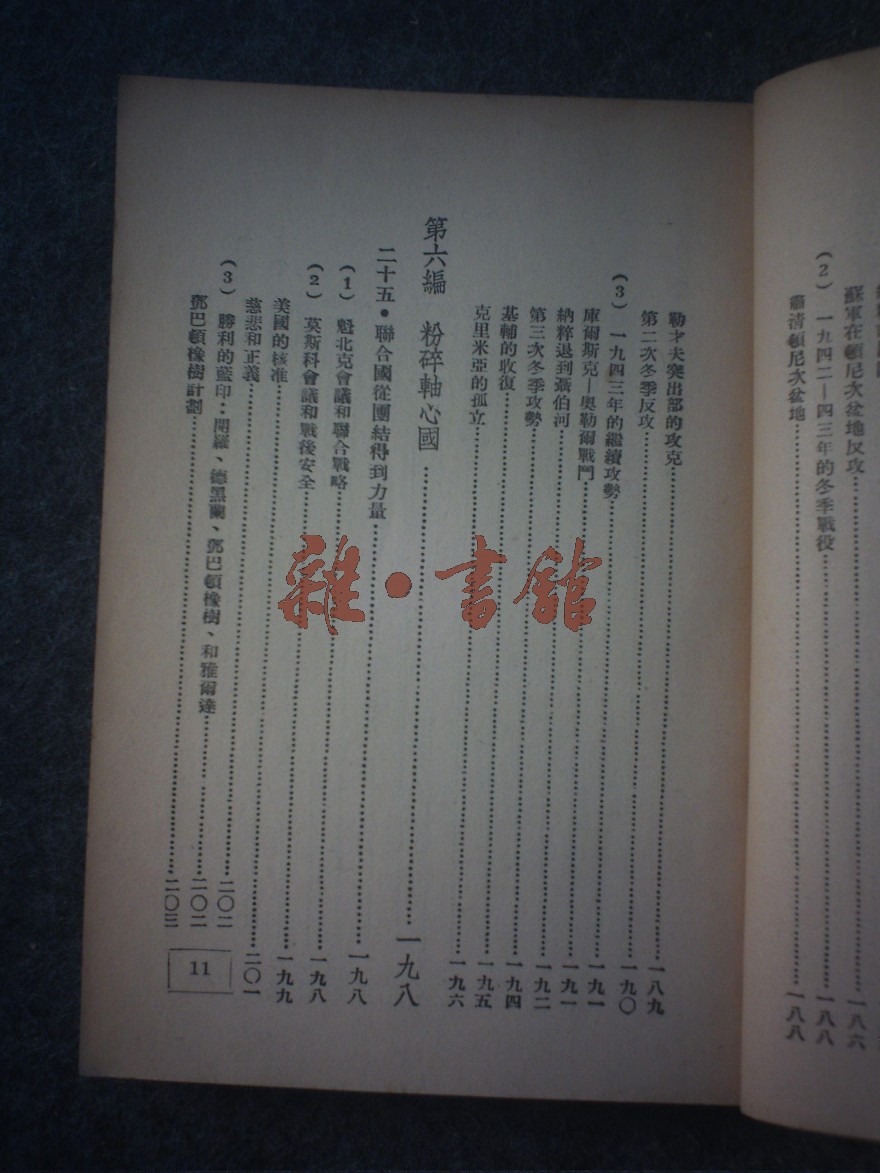 蘇軍在頓尼次盆地反攻……一八六
(2) 一九四二—四三年的冬季戰役……一八八
肅清頓尼次盆地……一八八
勒才夫突出部的攻克……一八九
第二次冬季反攻……一九〇
(3) 一九四三年的繼續攻勢……一九一
庫爾斯克—奧勒爾戰鬥……一九一
納粹退到聶伯河……一九二
第三次冬季攻勢……一九四
基輔的收復……一九五
克里米亞的孤立……一九六
第六編 粉碎軸心國……一九八
二十五•聯合國從團結得到力量……一九八
(1) 魁北克會議和聯合戰略……一九八
(2) 莫斯科會議和戰後安全……一九九
美國的核准……二〇一
慈悲和正義……二〇二
(3) 勝利的藍印：開羅、德黑蘭、鄧巴頓橡樹、和雅爾達……二〇二
鄧巴頓橡樹計劃……二〇三
11
雜•書館